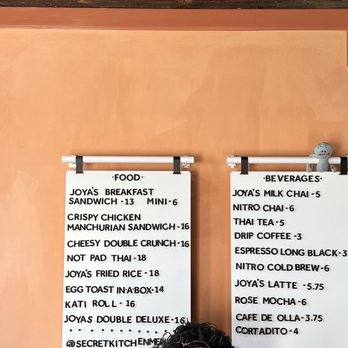 ·FOOD·
JOYA'S BREAKFAST
SANDWICH - 13 MINI - 6
CRISPY CHICKEN
MANCHURIAN SANDWICH - 16
CHEESY DOUBLE CRUNCH - 16
NOT PAD THAI - 18
JOYA'S FRIED RICE - 18
EGG TOAST IN-A-BOX - 14
KATI ROLL - 16
JOYAS DOUBLE DELUXE - 16
·BEVERAGES·
JOYA'S MILK CHAI - 5
NITRO CHAI - 6
THAI TEA - 5
DRIP COFFEE - 3
ESPRESSO LONG BLACK - 3
NITRO COLD BREW - 6
JOYA'S LATTE - 5.75
ROSE MOCHA - 6
CAFE DE OLLA - 3.75
CORTADITO - 4